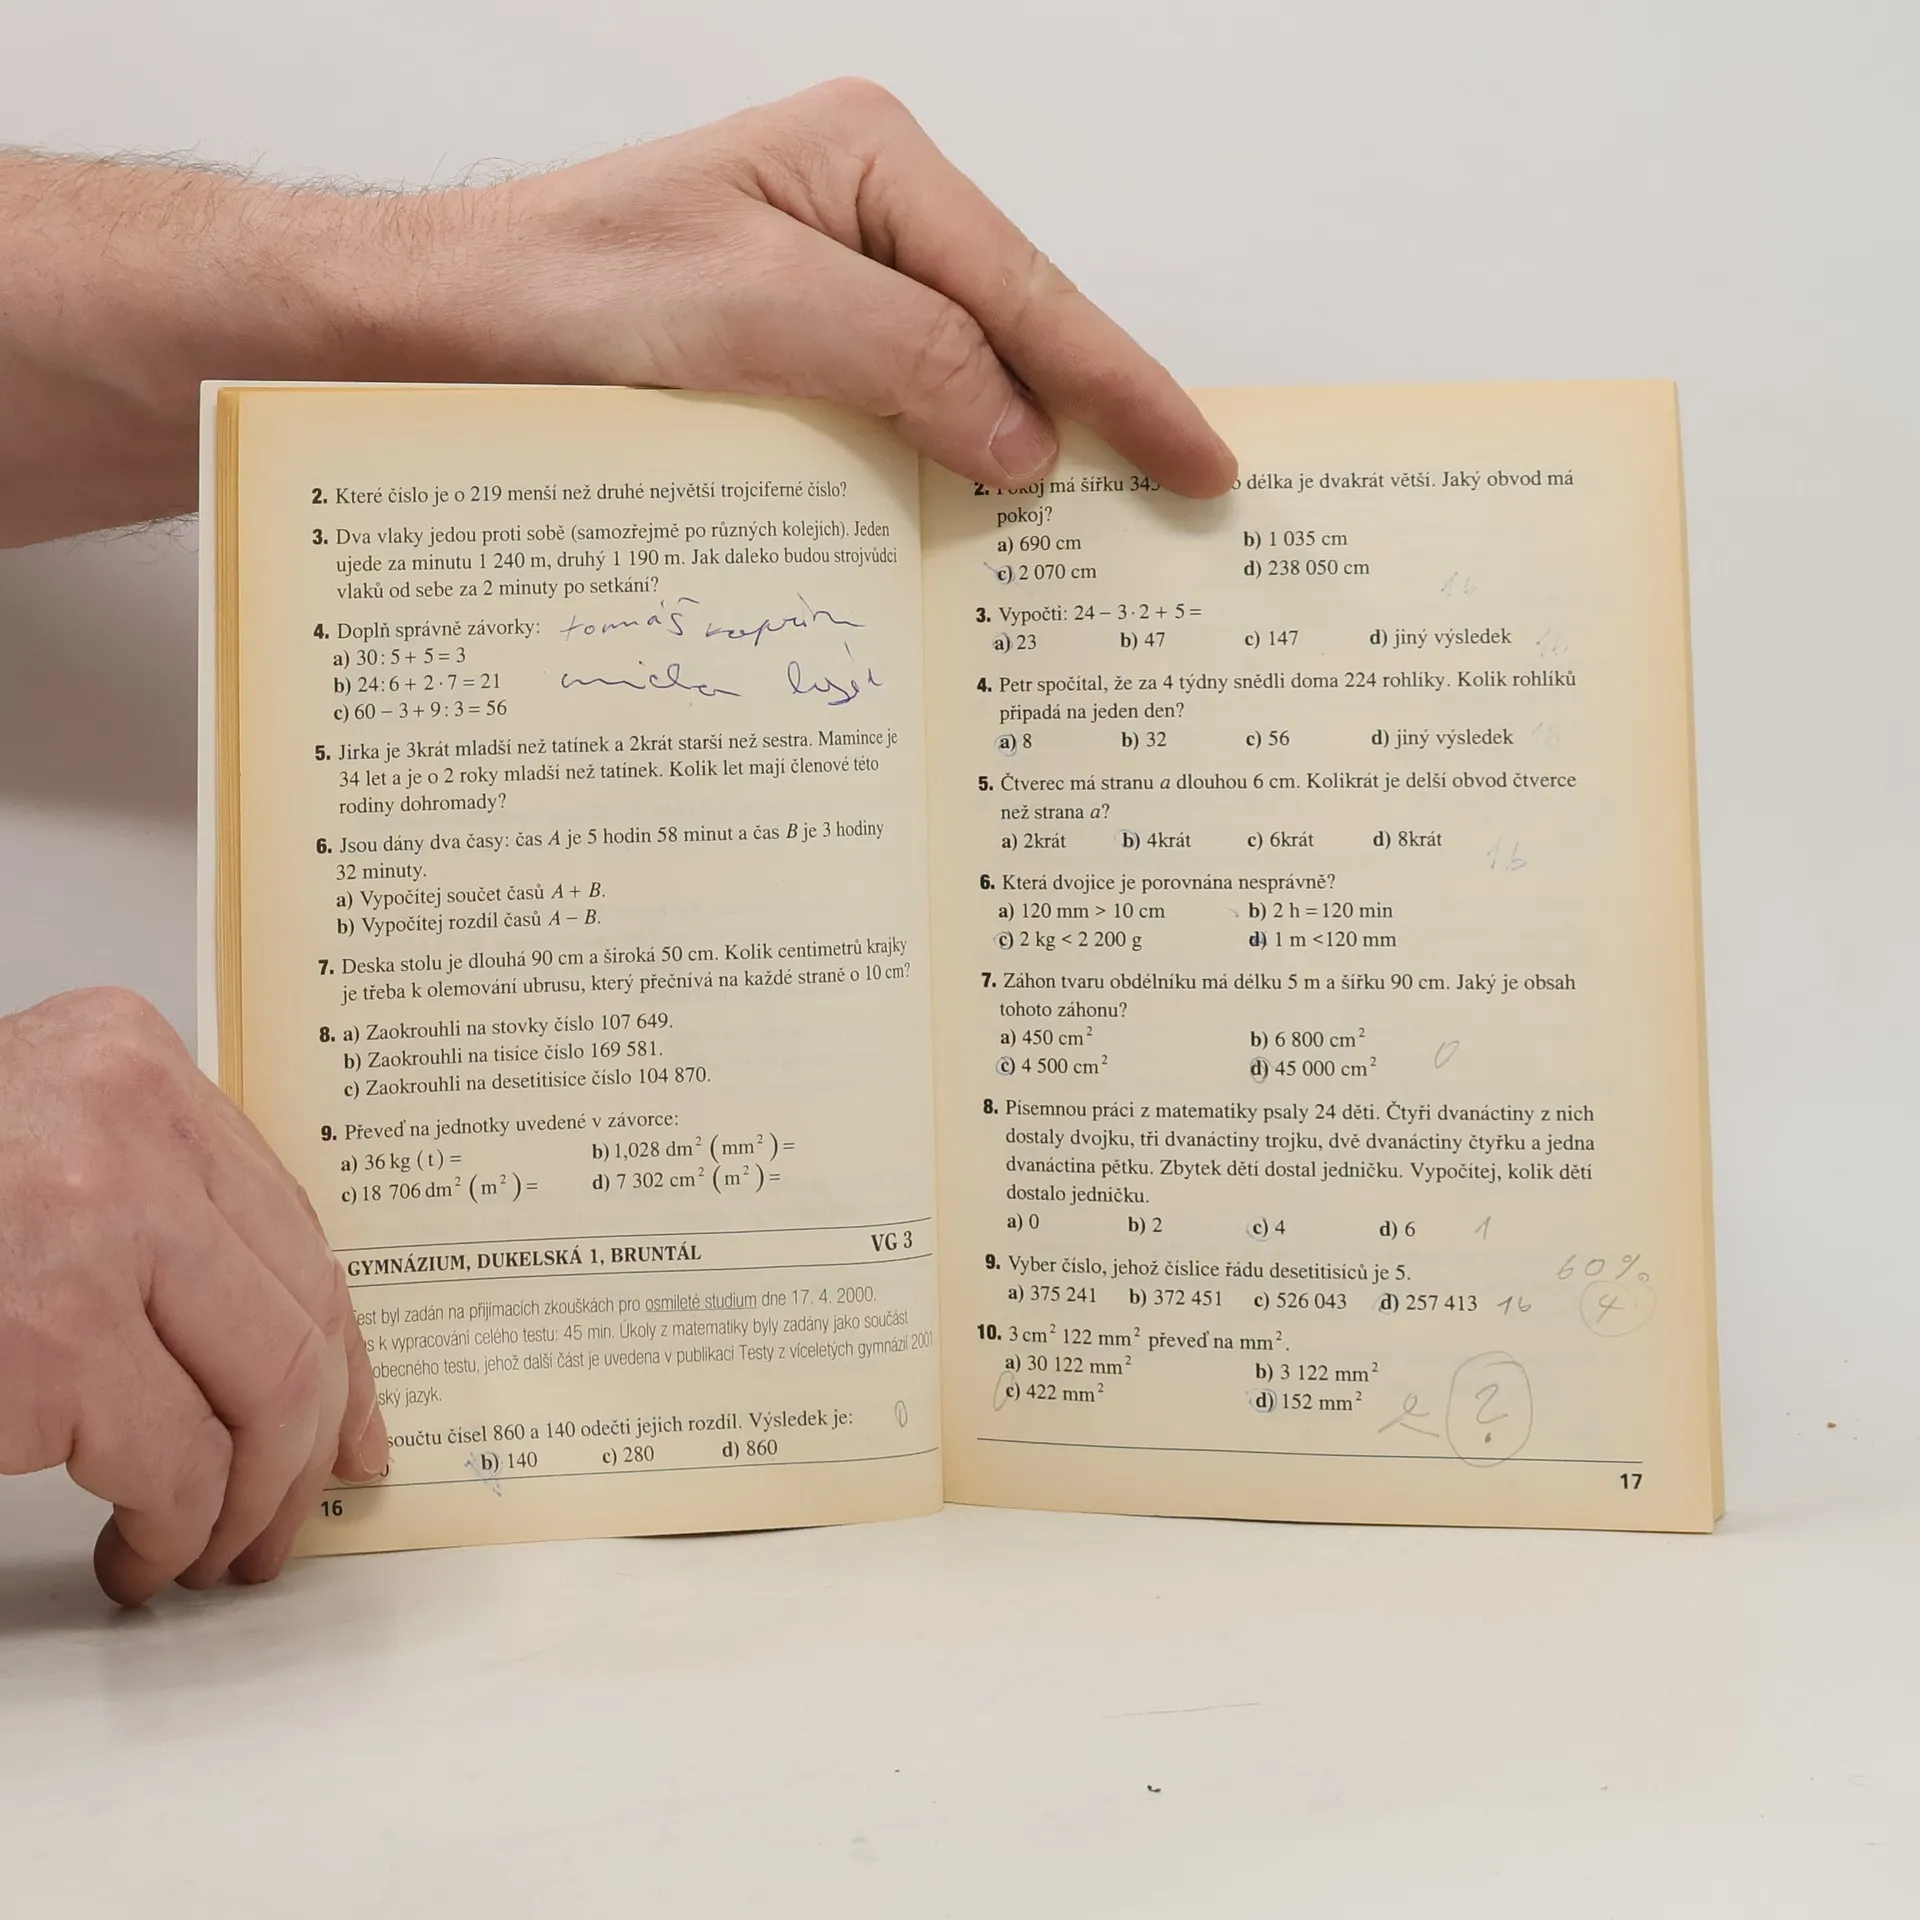 2. Které číslo je o 219 menší než druhé největší trojciferné číslo?
3. Dva vlaky jedou proti sobě (samozřejmě po různých kolejích). Jeden
ujede za minutu 1 240 m, druhý 1 190 m. Jak daleko budou strojvůdci
vlaků od sebe za 2 minuty po setkání?
4. Doplň správně závorky: tomáš
a) 30 : 5 + 5 = 3
b) 24 : 6 + 2 · 7 = 21
c) 60 – 3 + 9 : 3 = 56
5. Jirka je 3krát mladší než tatínek a 2krát starší než sestra. Mamince je
34 let a je o 2 roky mladší než tatínek. Kolik let mají členové této
rodiny dohromady?
6. Jsou dány dva časy: čas A je 5 hodin 58 minut a čas B je 3 hodiny
32 minuty.
a) Vypočítej součet časů A + B.
b) Vypočítej rozdíl časů A – B.
7. Deska stolu je dlouhá 90 cm a široká 50 cm. Kolik centimetrů krajky
je třeba k olemování ubrusu, který přečnívá na každé straně o 10 cm?
8. a) Zaokrouhli na stovky číslo 107 649.
b) Zaokrouhli na tisíce číslo 169 581.
c) Zaokrouhli na desetitisíce číslo 104 870.
9. Převeď na jednotky uvedené v závorce:
a) 36 kg (t) = b) 1,028 dm² (mm²) =
c) 18 706 dm² (m²) = d) 7 302 cm² (m²) =
GYMNÁZIUM, DUKELSKÁ 1, BRUNTÁL VG 3
est byl zadán na přijímacích zkouškách pro osmileté studium dne 17. 4. 2000.
s k vypracování celého testu: 45 min. Úkoly z matematiky byly zadány jako součást
obecného testu, jehož další část je uvedena v publikaci Testy z víceletých gymnázií 2001
ský jazyk.
součtu čísel 860 a 140 odečti jejich rozdíl. Výsledek je: 0
b) 140 c) 280 d) 860
16
2. Pokoj má šířku 345 délka je dvakrát větší. Jaký obvod má
pokoj?
a) 690 cm b) 1 035 cm
c) 2 070 cm d) 238 050 cm
1b
3. Vypočti: 24 – 3 · 2 + 5 =
a) 23 b) 47 c) 147 d) jiný výsledek
4. Petr spočítal, že za 4 týdny snědli doma 224 rohlíky. Kolik rohlíků
připadá na jeden den?
a) 8 b) 32 c) 56 d) jiný výsledek
5. Čtverec má stranu a dlouhou 6 cm. Kolikrát je delší obvod čtverce
než strana a?
a) 2krát b) 4krát c) 6krát d) 8krát
1b
6. Která dvojice je porovnána nesprávně?
a) 120 mm > 10 cm b) 2 h = 120 min
c) 2 kg < 2 200 g d) 1 m <120 mm
7. Záhon tvaru obdélníku má délku 5 m a šířku 90 cm. Jaký je obsah
tohoto záhonu?
a) 450 cm² b) 6 800 cm²
c) 4 500 cm² d) 45 000 cm² 0
8. Písemnou práci z matematiky psaly 24 děti. Čtyři dvanáctiny z nich
dostaly dvojku, tři dvanáctiny trojku, dvě dvanáctiny čtyřku a jedna
dvanáctina pětku. Zbytek dětí dostal jedničku. Vypočítej, kolik dětí
dostalo jedničku.
a) 0 b) 2 c) 4 d) 6 1
9. Vyber číslo, jehož číslice řádu desetitisíců je 5. 60%
a) 375 241 b) 372 451 c) 526 043 d) 257 413 1b 4
10. 3 cm² 122 mm² převeď na mm².
a) 30 122 mm² b) 3 122 mm²
c) 422 mm² d) 152 mm² ?
17